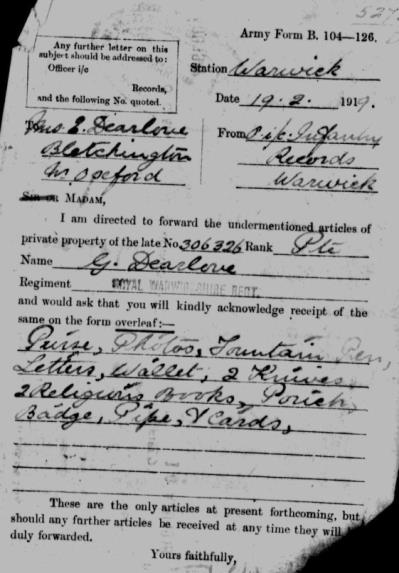 527
Army Form B. 104—126.
Any further letter on this
subject should be addressed to:
Officer i/c
Records,
and the following No. quoted.
Station Warwick
Date 19. 2. 1919.
To Mrs E. Dearlove
Bletchington
Nr. Oxford
From O. i/c. Infantry
Records
Warwick
Sir or MADAM,
I am directed to forward the undermentioned articles of
private property of the late No. 306326 Rank Pte
Name G. Dearlove
Regiment ROYAL WARWICKSHIRE REGT.
and would ask that you will kindly acknowledge receipt of the
same on the form overleaf:—
Purse, Photos, Fountain Pen,
Letters, Wallet, 2 Knives,
2 Religious Books, Pouch,
Badge, Pipe, Cards,
These are the only articles at present forthcoming, but
should any further articles be received at any time they will be
duly forwarded.
Yours faithfully,